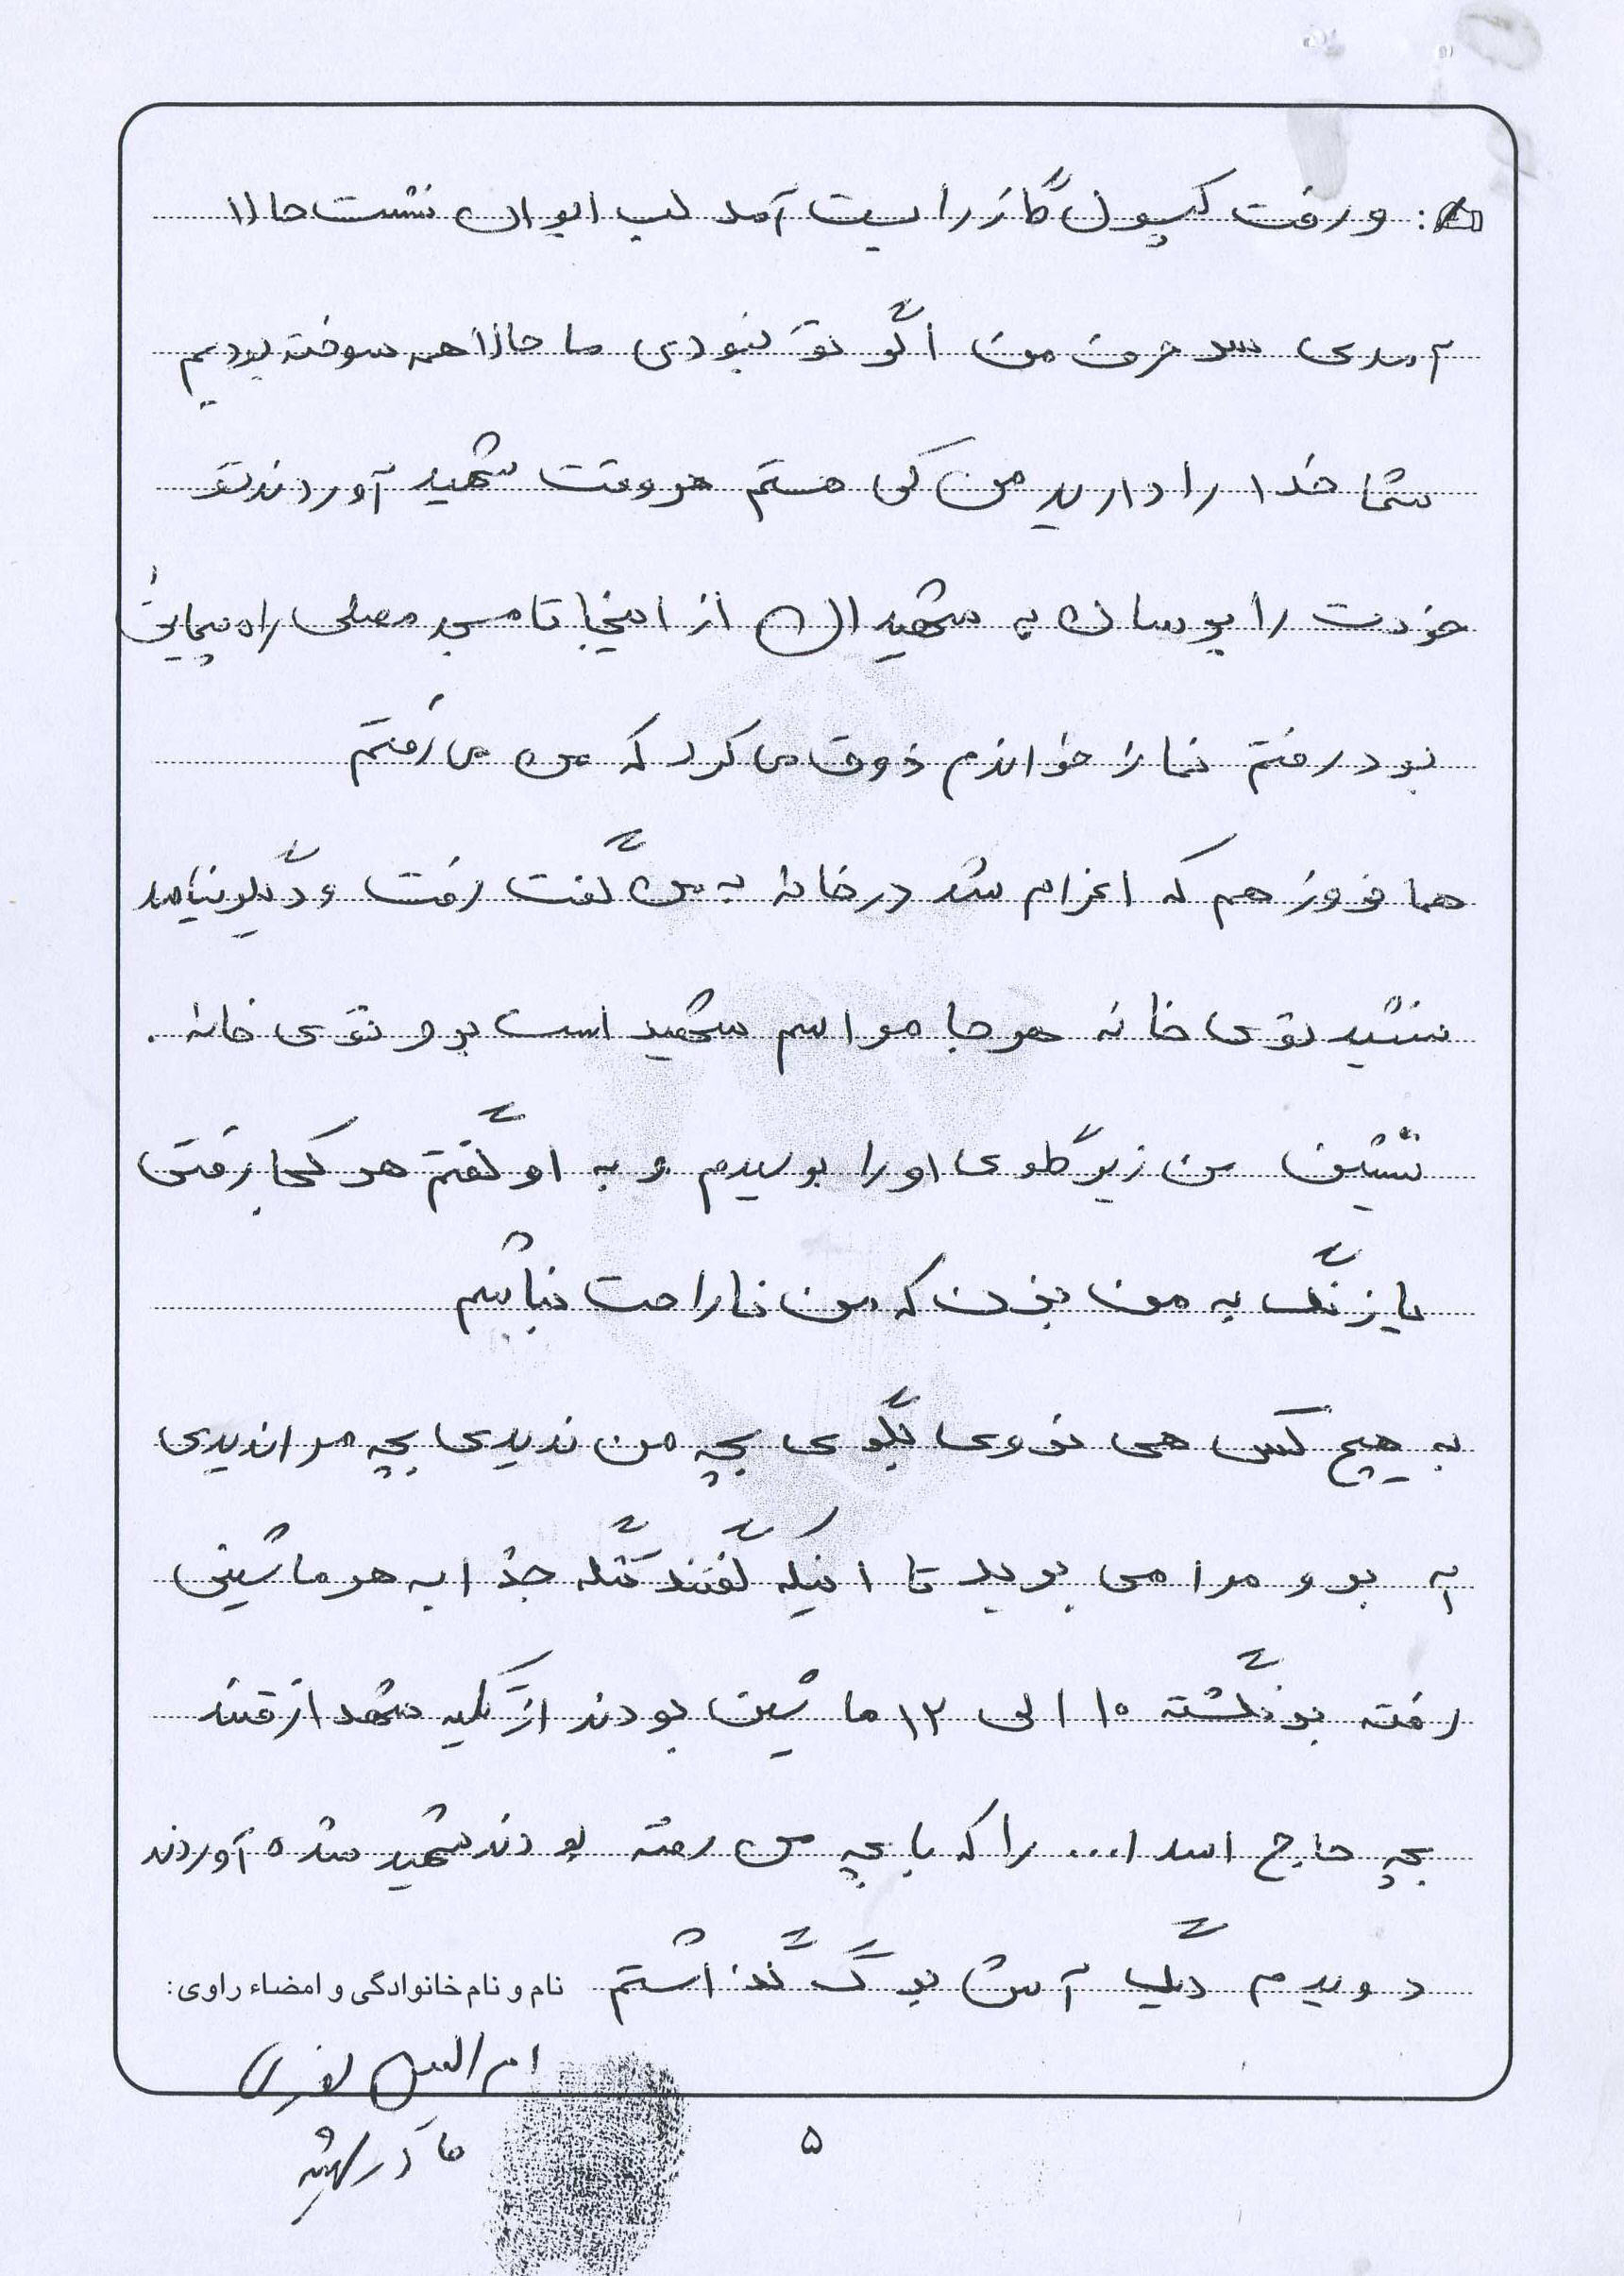 و رفت کپسول گاز را بست آمد لب ایوان نشست حالا
آمدی سر حرف من اگر تو نبودی ما حالا همه سوخته بودیم
شما خدا را دارید من کی هستم هر وقت شهید آوردند تو
خودت را برسان به شهیدان از اینجا تا مسجد مصلی راه پیمایی
بود رفتم نماز خواندم ذوق می کرد که من می رفتم
همان روز هم که اعزام شد در خانه به من گفت رفت و دیگر نیامد
ننشید توی خانه هر جا مراسم شهید است برو توی خانه.
ننشین من زیر گلوی او را بوسیدم و به او گفتم هر کجا رفتی
یا زنگ به من بزن که من ناراحت نباشم
به هیچ کس هی نروی بگوی بچه من ندیدی بچه مرا ندیدی
آبرو مرا می برید تا اینکه گفتند تنگه جذابه هر ماشینی
رفته برنگشته ۱۰ الی ۱۲ ماشین بودند از تکیه شهدا رفتند
بچه حاج اسدا... را که با بچه من رفته بودند شهید شده آوردند
دویدم دیگ آش بر گذاشتم
نام و نام خانوادگی و امضاء راوی:
ام البنین
مادر شهید
۵